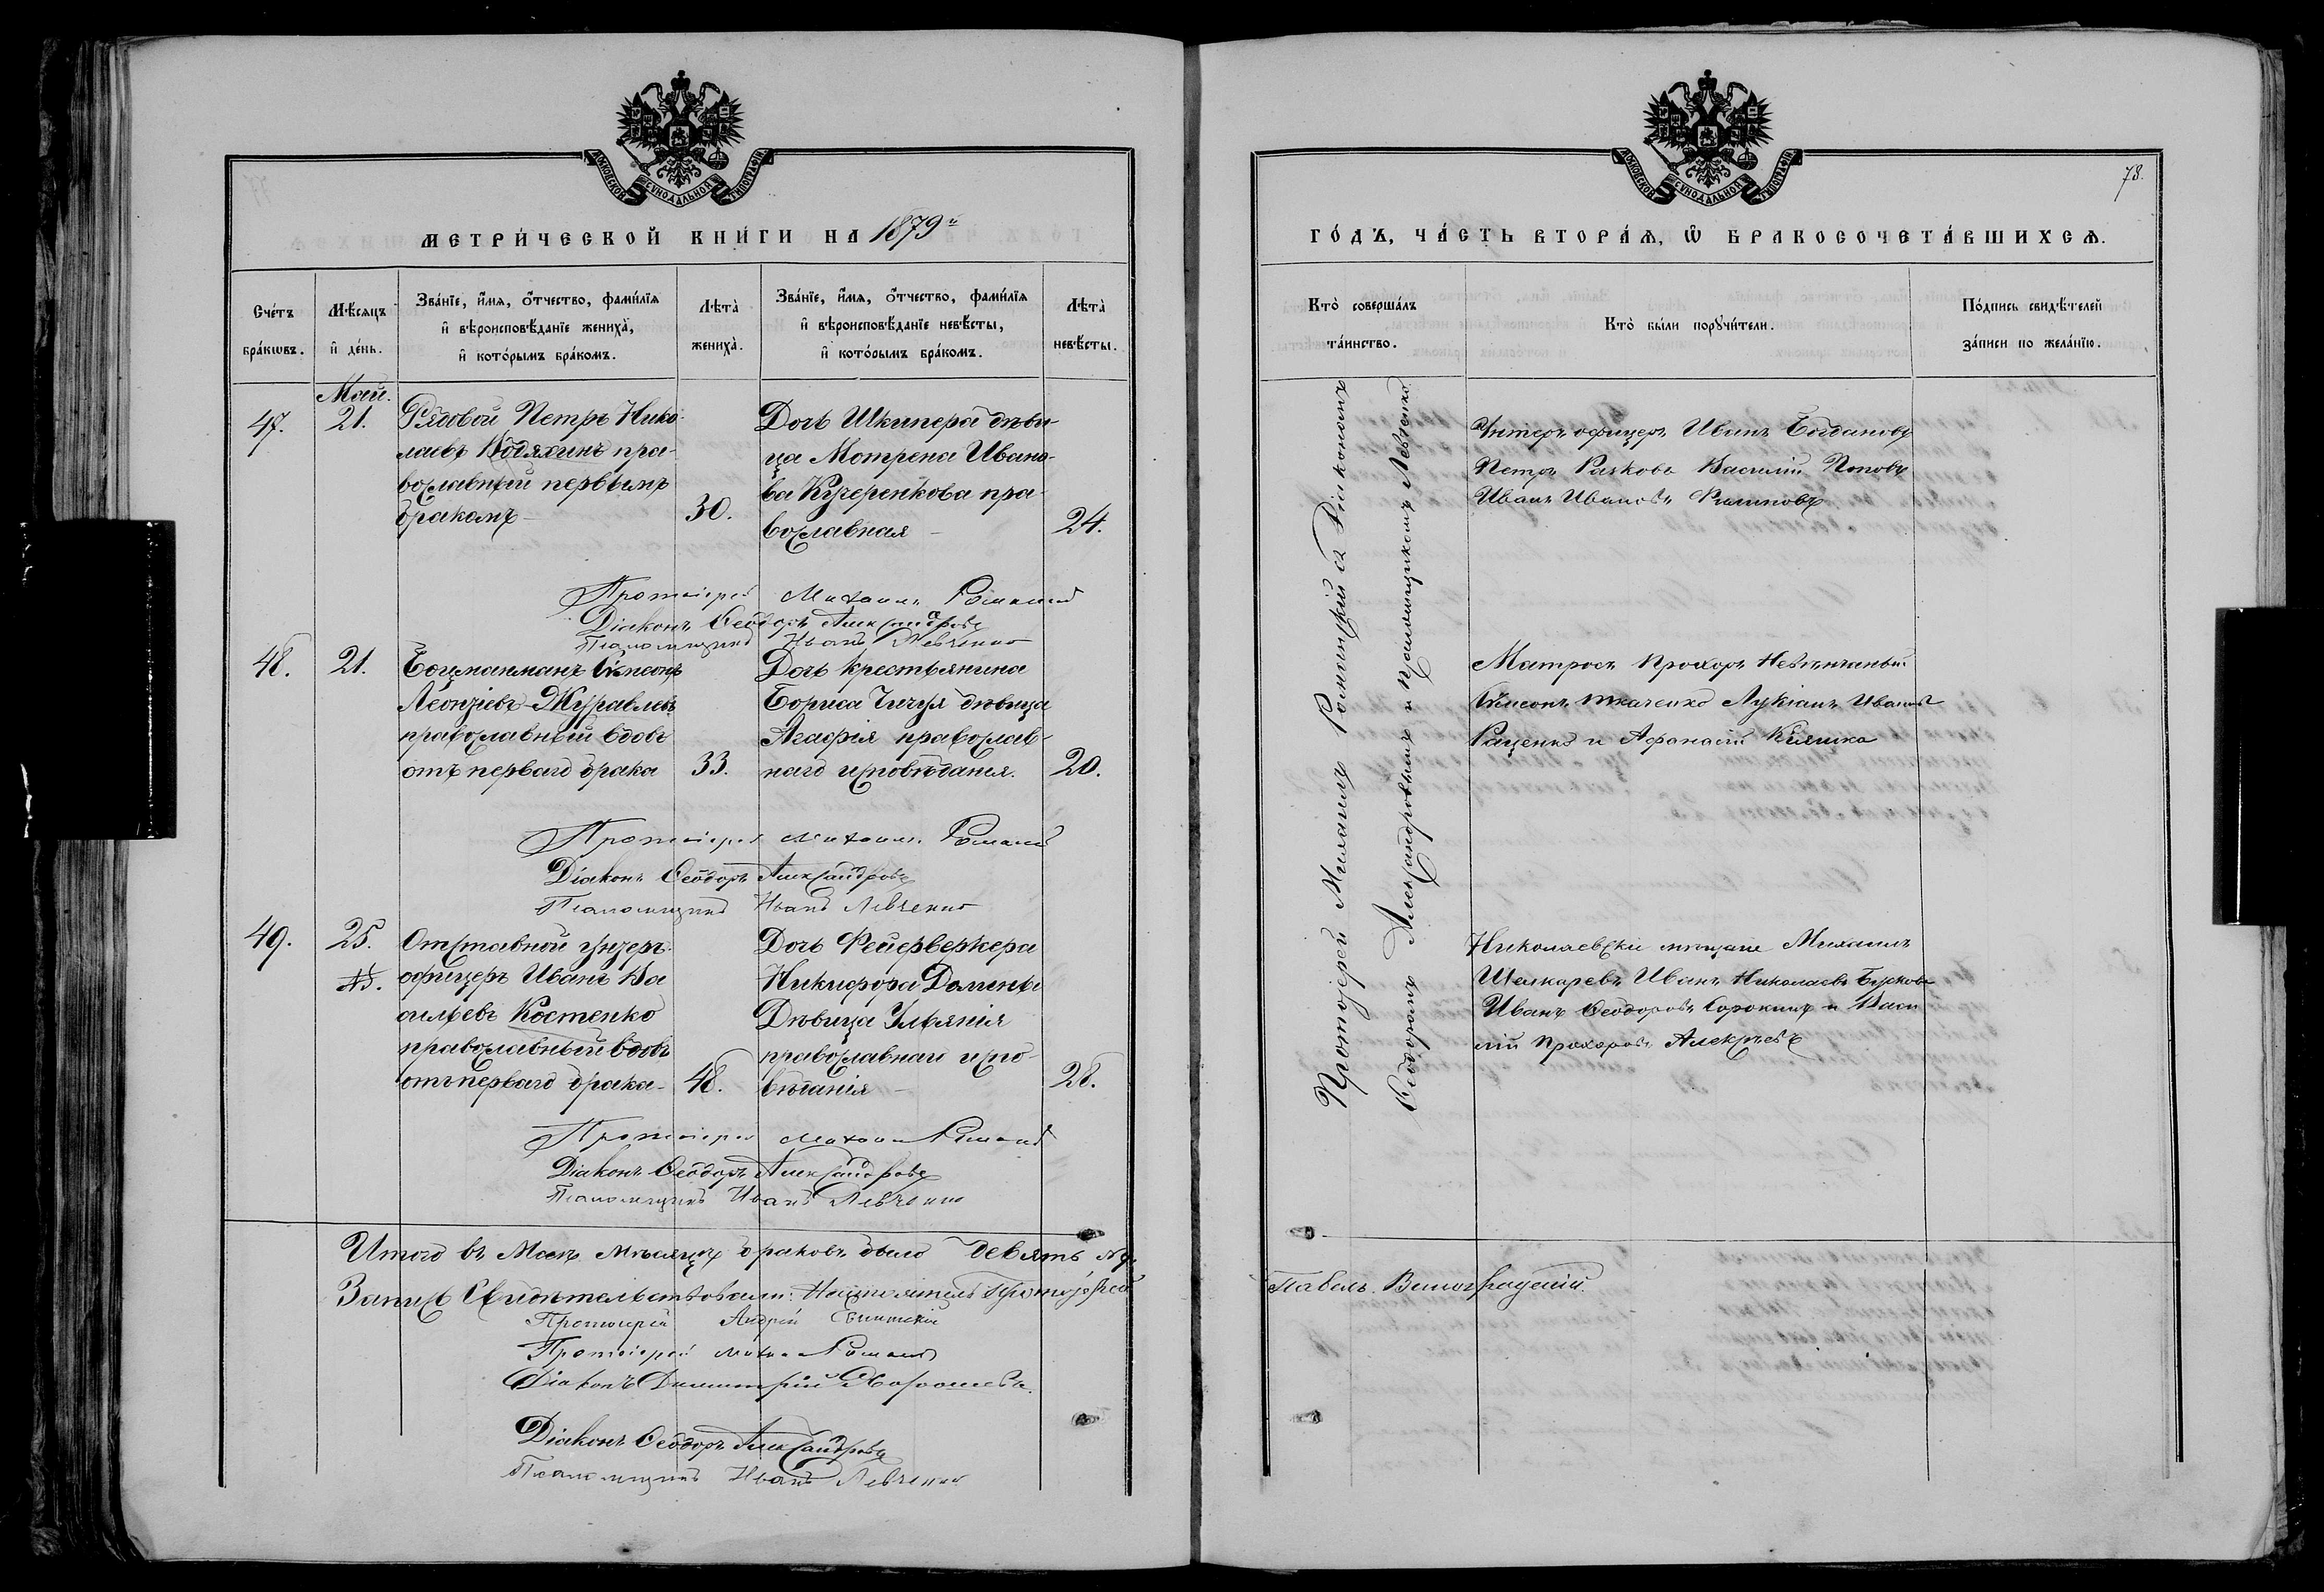 МОСКОВСКОЙ СѴНОДАЛЬНОЙ ТИПОГРАФІИ
МЕТРИ́ЧЕСКОЙ КНИ́ГИ НА 1879й
Сче́тъ бра́кωвъ.
Мѣ́сяцъ и҆ де́нь.
Зва́нїе, и҆́мя, ѻ҆́тчество, фами́лїя
и҆ вѣроисповѣ́данїе жениха̀,
и҆ кото́рымъ бра́комъ.
Лѣта̀ жениха̀.
Зва́нїе, и҆́мя, ѻ҆́тчество, фами́лїя
и҆ вѣроисповѣ́данїе невѣ́сты,
и҆ кото́рымъ бра́комъ.
Лѣта̀ невѣ́сты.
Май.
47.
21.
Рядовой Петръ Нико-
лаевъ пра-
вославный первымъ
бракомъ
30.
Дочь Шкипера дѣви-
ца Мотрена Ивано-
ва Кучеренкова пра-
вославная
24.
Протоіерей Михаилъ
Діаконъ Ѳеодоръ Александровъ
Псаломщикъ Иванъ Левченко
48.
21.
Боцманманъ Симеонъ
Леонтіевъ Журавлевъ
православный вдовъ
отъ перваго брака
33.
Дочь крестьянина
Бориса Чичуя дѣвица
Агафія православ-
наго исповѣданія.
20.
Протоіерей Михаилъ
Діаконъ Ѳеодоръ Александровъ
Псаломщикъ Иванъ Левченко
49.
25.
Отставной унтеръ
офицеръ Иванъ Ва
сильевъ Костенко
православный вдовъ
отъ перваго брака
48.
Дочь Фейерверкера
Никифора Домины
Дѣвица Ульянія
православнаго испо-
вѣданія
28.
Протоіерей
Діаконъ Ѳеодоръ Александровъ
Псаломщикъ Иванъ Левченко
Итого въ Маѣ мѣсяцѣ браковъ было девять №9.
Запись свидѣтельствовали: Настоятель Протоіерей
Протоіерей Андрей
Протоіерей
Діаконъ Димитрій
Діаконъ Ѳеодоръ Александровъ
Псаломщикъ Иванъ Левченко
МОСКОВСКОЙ СѴНОДАЛЬНОЙ ТИПОГРАФІИ
78.
ГО́ДЪ, ЧА́СТЬ ВТОРА́Ѧ, Ѽ БРАКОСОЧЕТА́ВШИХСѦ.
Кто̀ соверша́лъ та́инство.
Кто̀ бы́ли порꙋчи́тели.
По́дпись свидѣ́телей
за́писи по жела́нїю.
Протоіерей Михаилъ съ Діакономъ
Ѳеодоромъ Александровымъ и псаломщикомъ Левченко
Унтеръ офицеръ Иванъ Богдановъ
Петръ Василій Поповъ
Иванъ Ивановъ
Матросъ Прохоръ
Симеонъ Ткаченко Лукіанъ Ивановъ
и Афанасій
Николаевскіе мѣщане Михаилъ
Иванъ Николаевъ
Иванъ Ѳеодоровъ Сорокинъ и Васи
лій Прохоровъ Алексѣевъ
Павелъ Виноградскій.